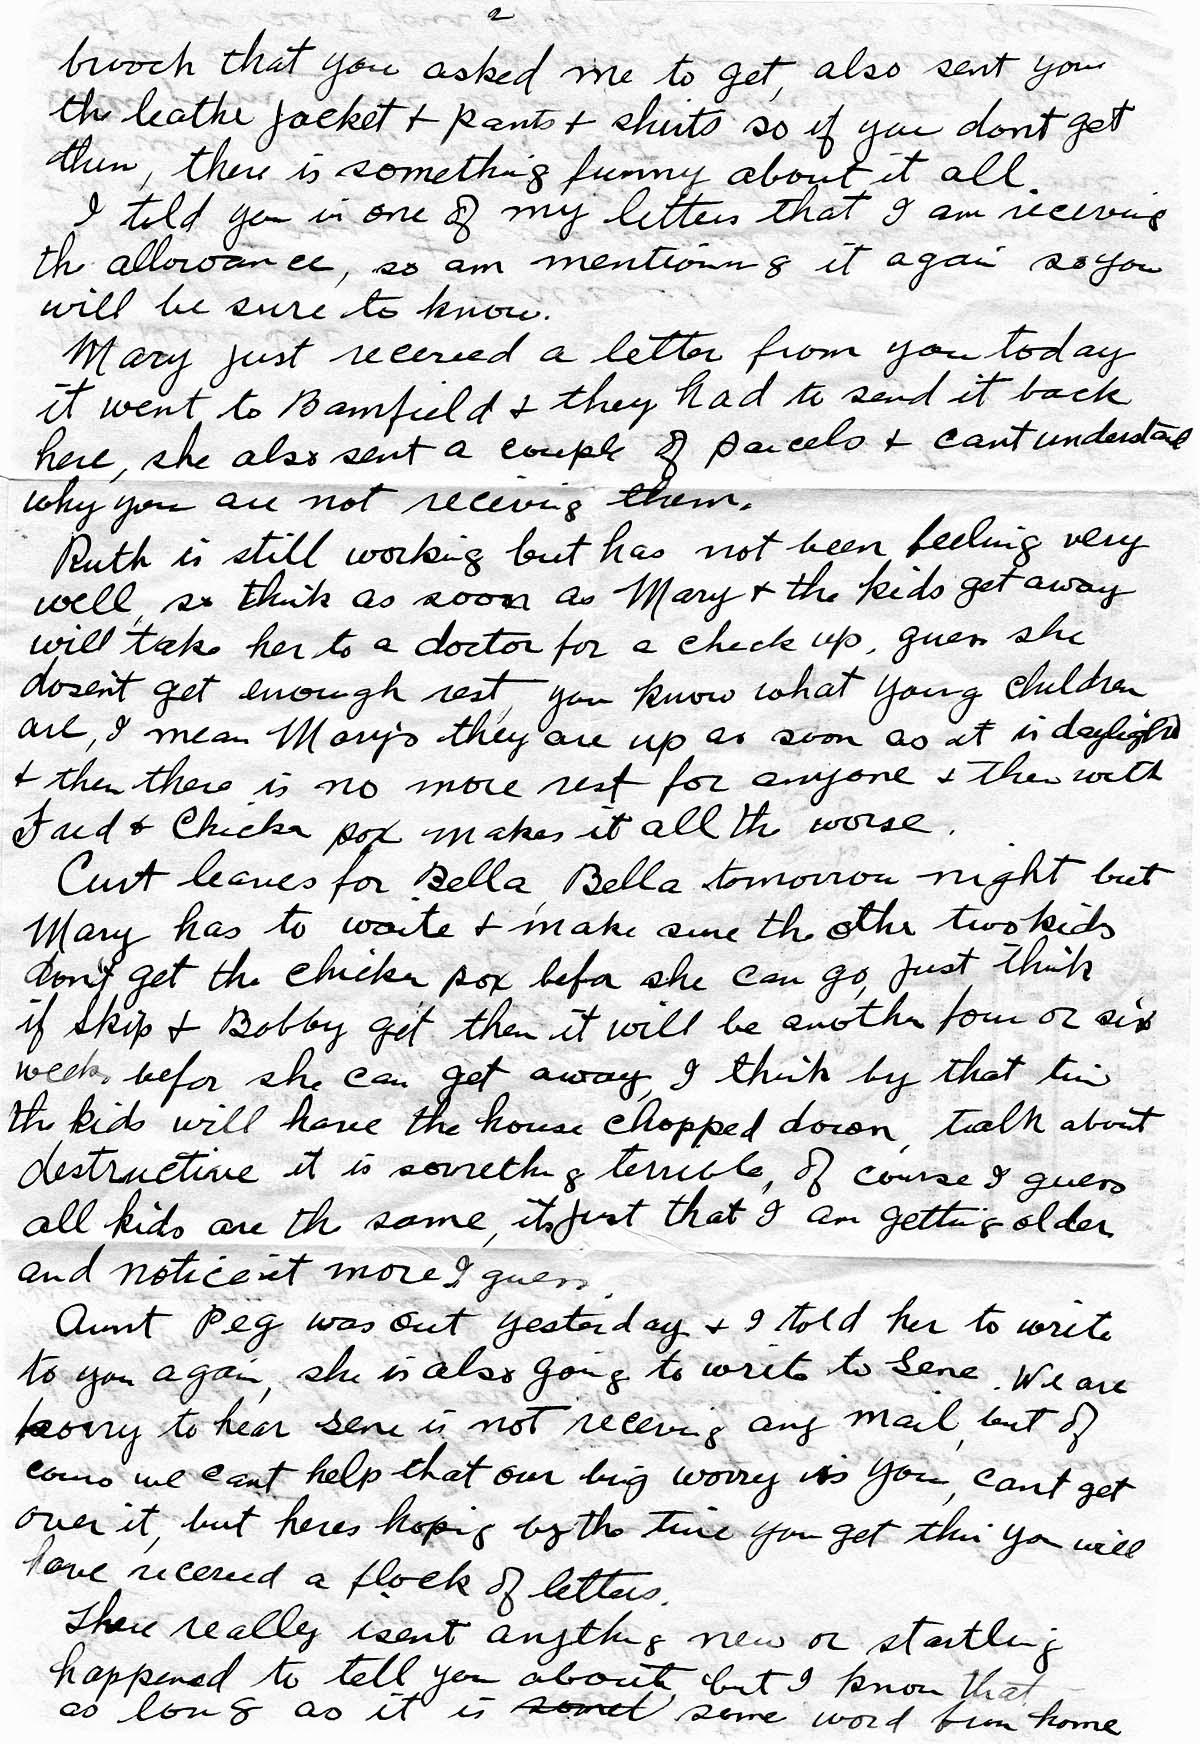 2
brooch that you asked me to get, also sent you
the leathe jacket + pants + shirts so if you dont get
them, there is something funny about it all.
I told you in one of my letters that I am receiving
the allowance, so am mentioning it again so you
will be sure to know.
Mary just received a letter from you today
it went to Bamfield + they had to send it back
here, she also sent a couple of parcels + cant understand
why you are not receiving them.
Ruth is still working but has not been feeling very
well, so think as soon as Mary + the kids get away
will take her to a doctor for a check up, guess she
dosent get enough rest, you know what young children
are, I mean Mary's they are up as soon as it is daylight
+ then there is no more rest for anyone + then with
Fred + Chicken pox makes it all the worse.
Curt leaves for Bella Bella tomorrow night but
Mary has to waite + make sure the other two kids
dont get the chicken pox befor she can go, just think
if Skip + Bobby get them it will be another four or six
weeks befor she can get away, I think by that time
the kids will have the house chopped down, talk about
destructive it is something terrible, of course I guess
all kids are the same, its just that I am getting older
and notice it more I guess.
Aunt Peg was out yesterday + I told her to write
to you again, she is also going to write to Gene. We are
sorry to hear Gene is not receiving any mail, but of
cours we cant help that our big worry is you, cant get
over it, but heres hoping by the time you get this you will
have received a flock of letters.
There really isent anything new or startling
happened to tell you about, but I know that
as long as it is somet some word from home